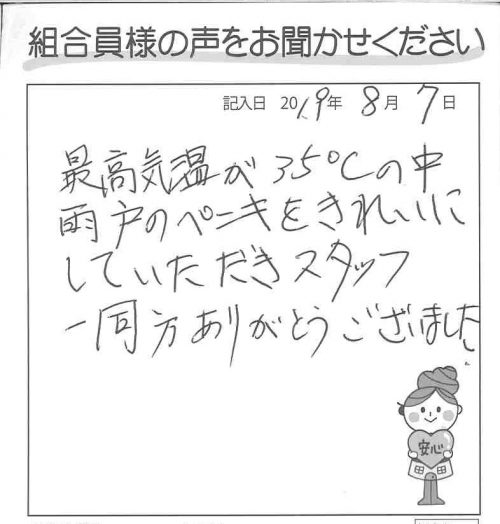 組合員様の声をお聞かせください
記入日 2019年 8月 7日
最高気温が35℃の中
雨戸のペンキをきれいに
していただきスタッフ
一同方ありがとうございました。
安心